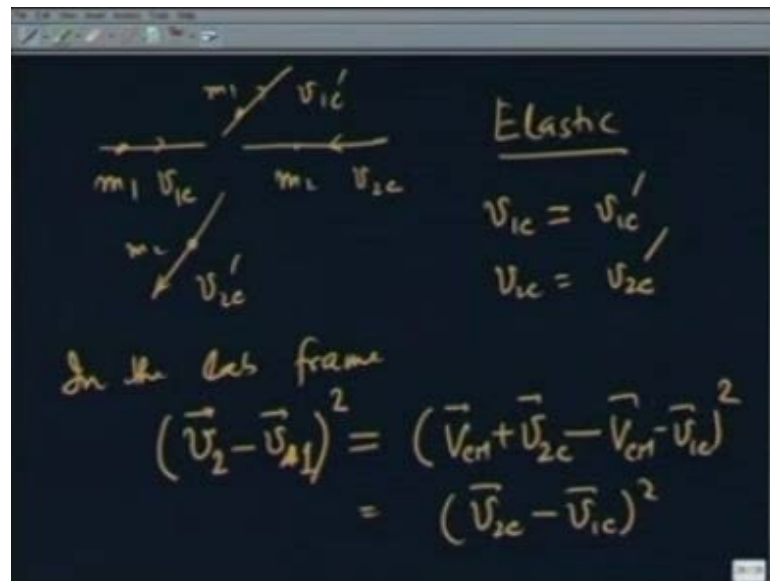 m₁ v₁c′
m₁ v₁c m₂ v₂c
m₂
v₂c′
Elastic
v₁c = v₁c′
v₂c = v₂c′
In the Lab frame
(v⃗₂ − v⃗₁)² = (V⃗cm + v⃗₂c − V⃗cm − v⃗₁c)²
= (v⃗₂c − v⃗₁c)²